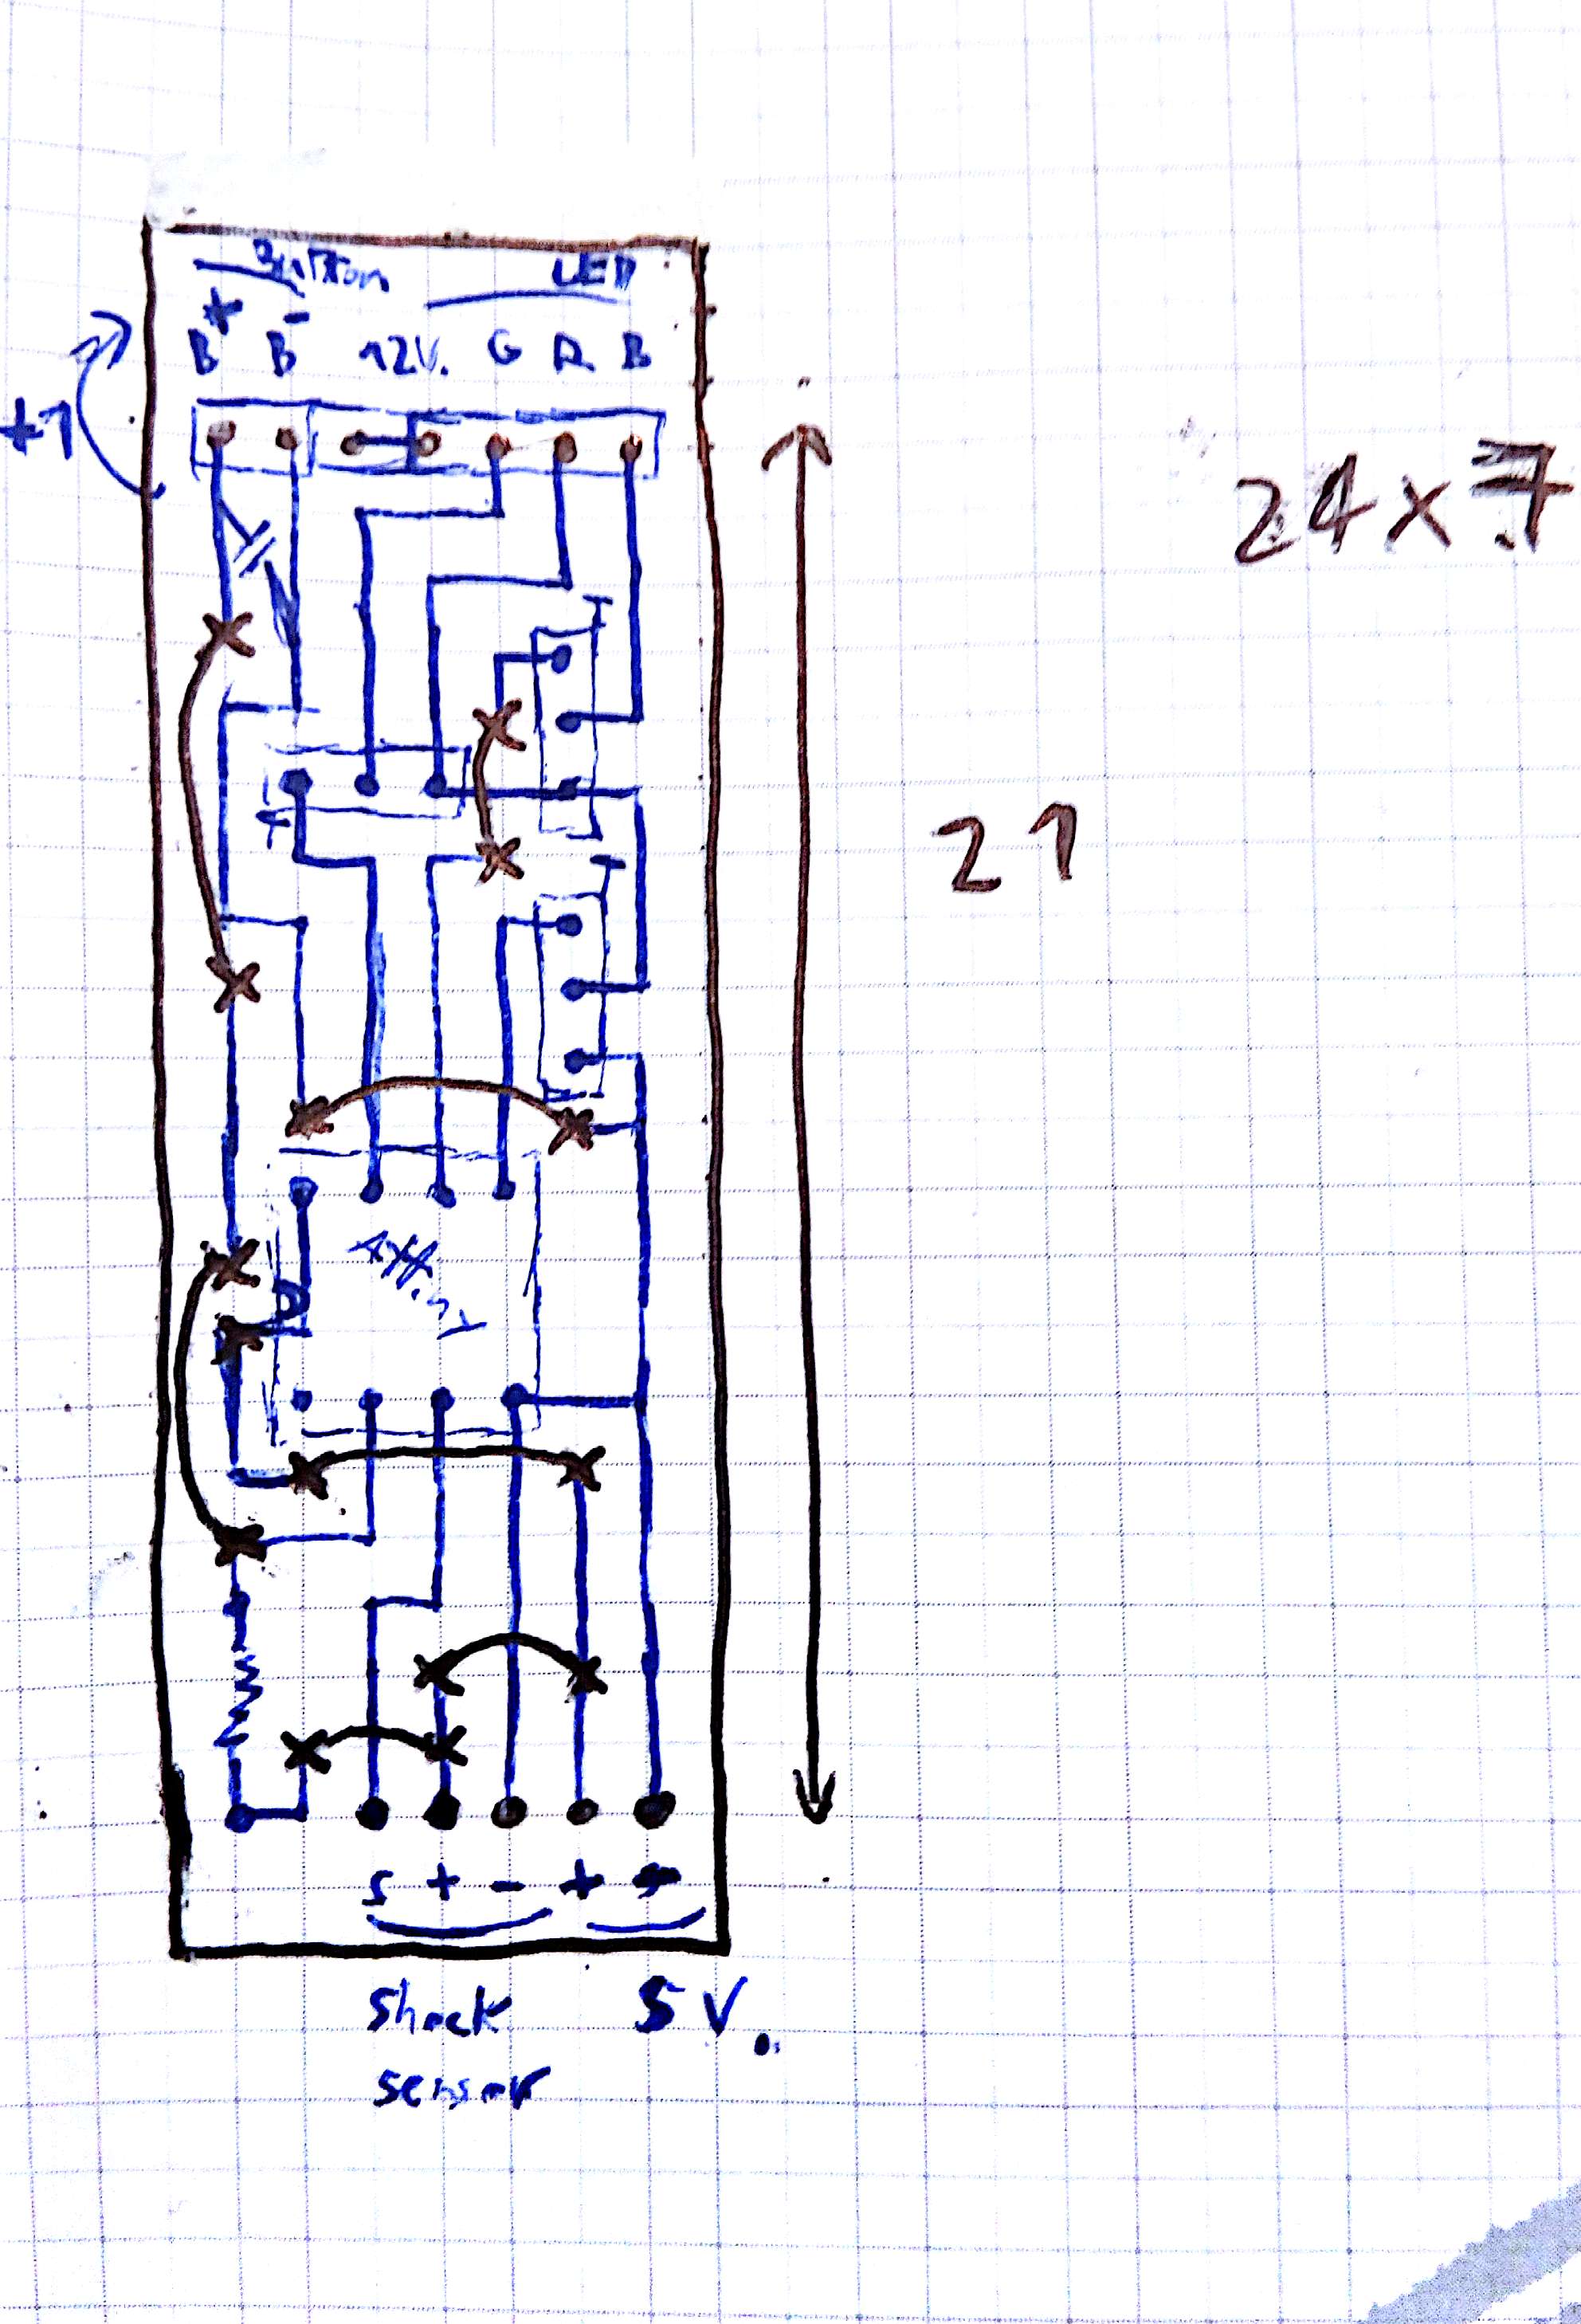 Button LED
+ -
B B 12V. G R B
+1
24 x 7
21
ATtiny
S + - +
Shock 5 V.
sensor